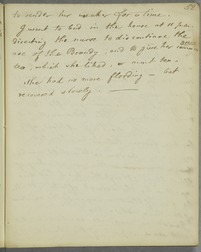 to render her weaker for a time.
I went to bed in the house at 11 p.m.
directing the nurse to discontinue the
use of the Brandy, and to give her
tea, which she liked, or mint tea -
She had no more flooding - but
recovered slowly. -